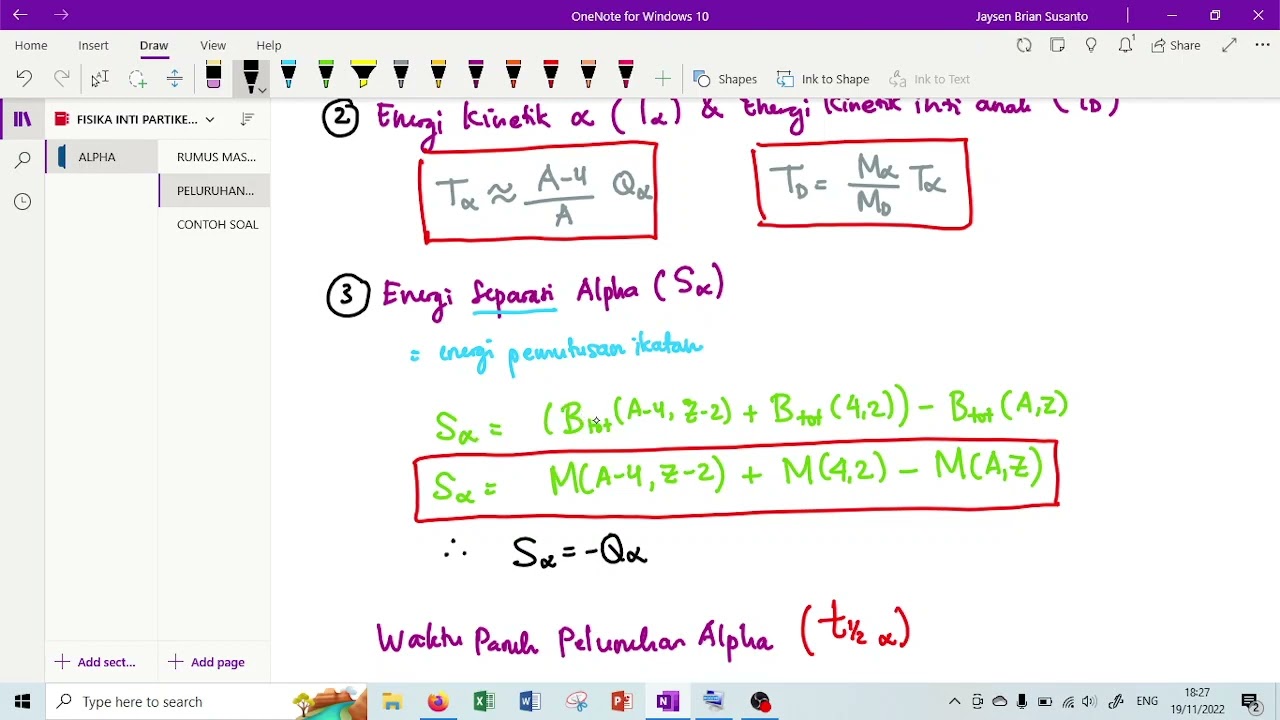 OneNote for Windows 10
Jaysen Brian Susanto
Home Insert Draw View Help
Share
Shapes
Ink to Shape
Ink to Text
FISIKA INTI PARTIKE...
ALPHA
RUMUS MAS...
PELURUHAN...
CONTOH SOAL
② Energi Kinetik α (Tα) & Energi Kinetik inti anak (TD)
Tα ≈ A-4/A Qα
TD = Mα/MD Tα
③ Energi Separasi Alpha (Sα)
= energi pemutusan ikatan
Sα = (Btot(A-4, Z-2) + Btot(4,2)) - Btot(A,Z)
Sα = M(A-4, Z-2) + M(4,2) - M(A,Z)
∴ Sα = -Qα
Waktu Paruh Peluruhan Alpha (t½ α)
+ Add sect...
+ Add page
Type here to search
ENG
18:27
19/11/2022
2